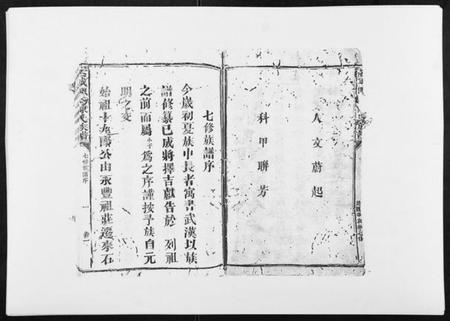 人文蔚起
科甲聯芳
七修族譜序
今歲初夏族中長者寓書武漢以族
譜修纂已成將擇吉獻告於 列祖
之前而屬小子為之序謹按予族自元
明之交
始祖十九郎公由永豐祖莊遷來石
七修族譜序
一
卷一